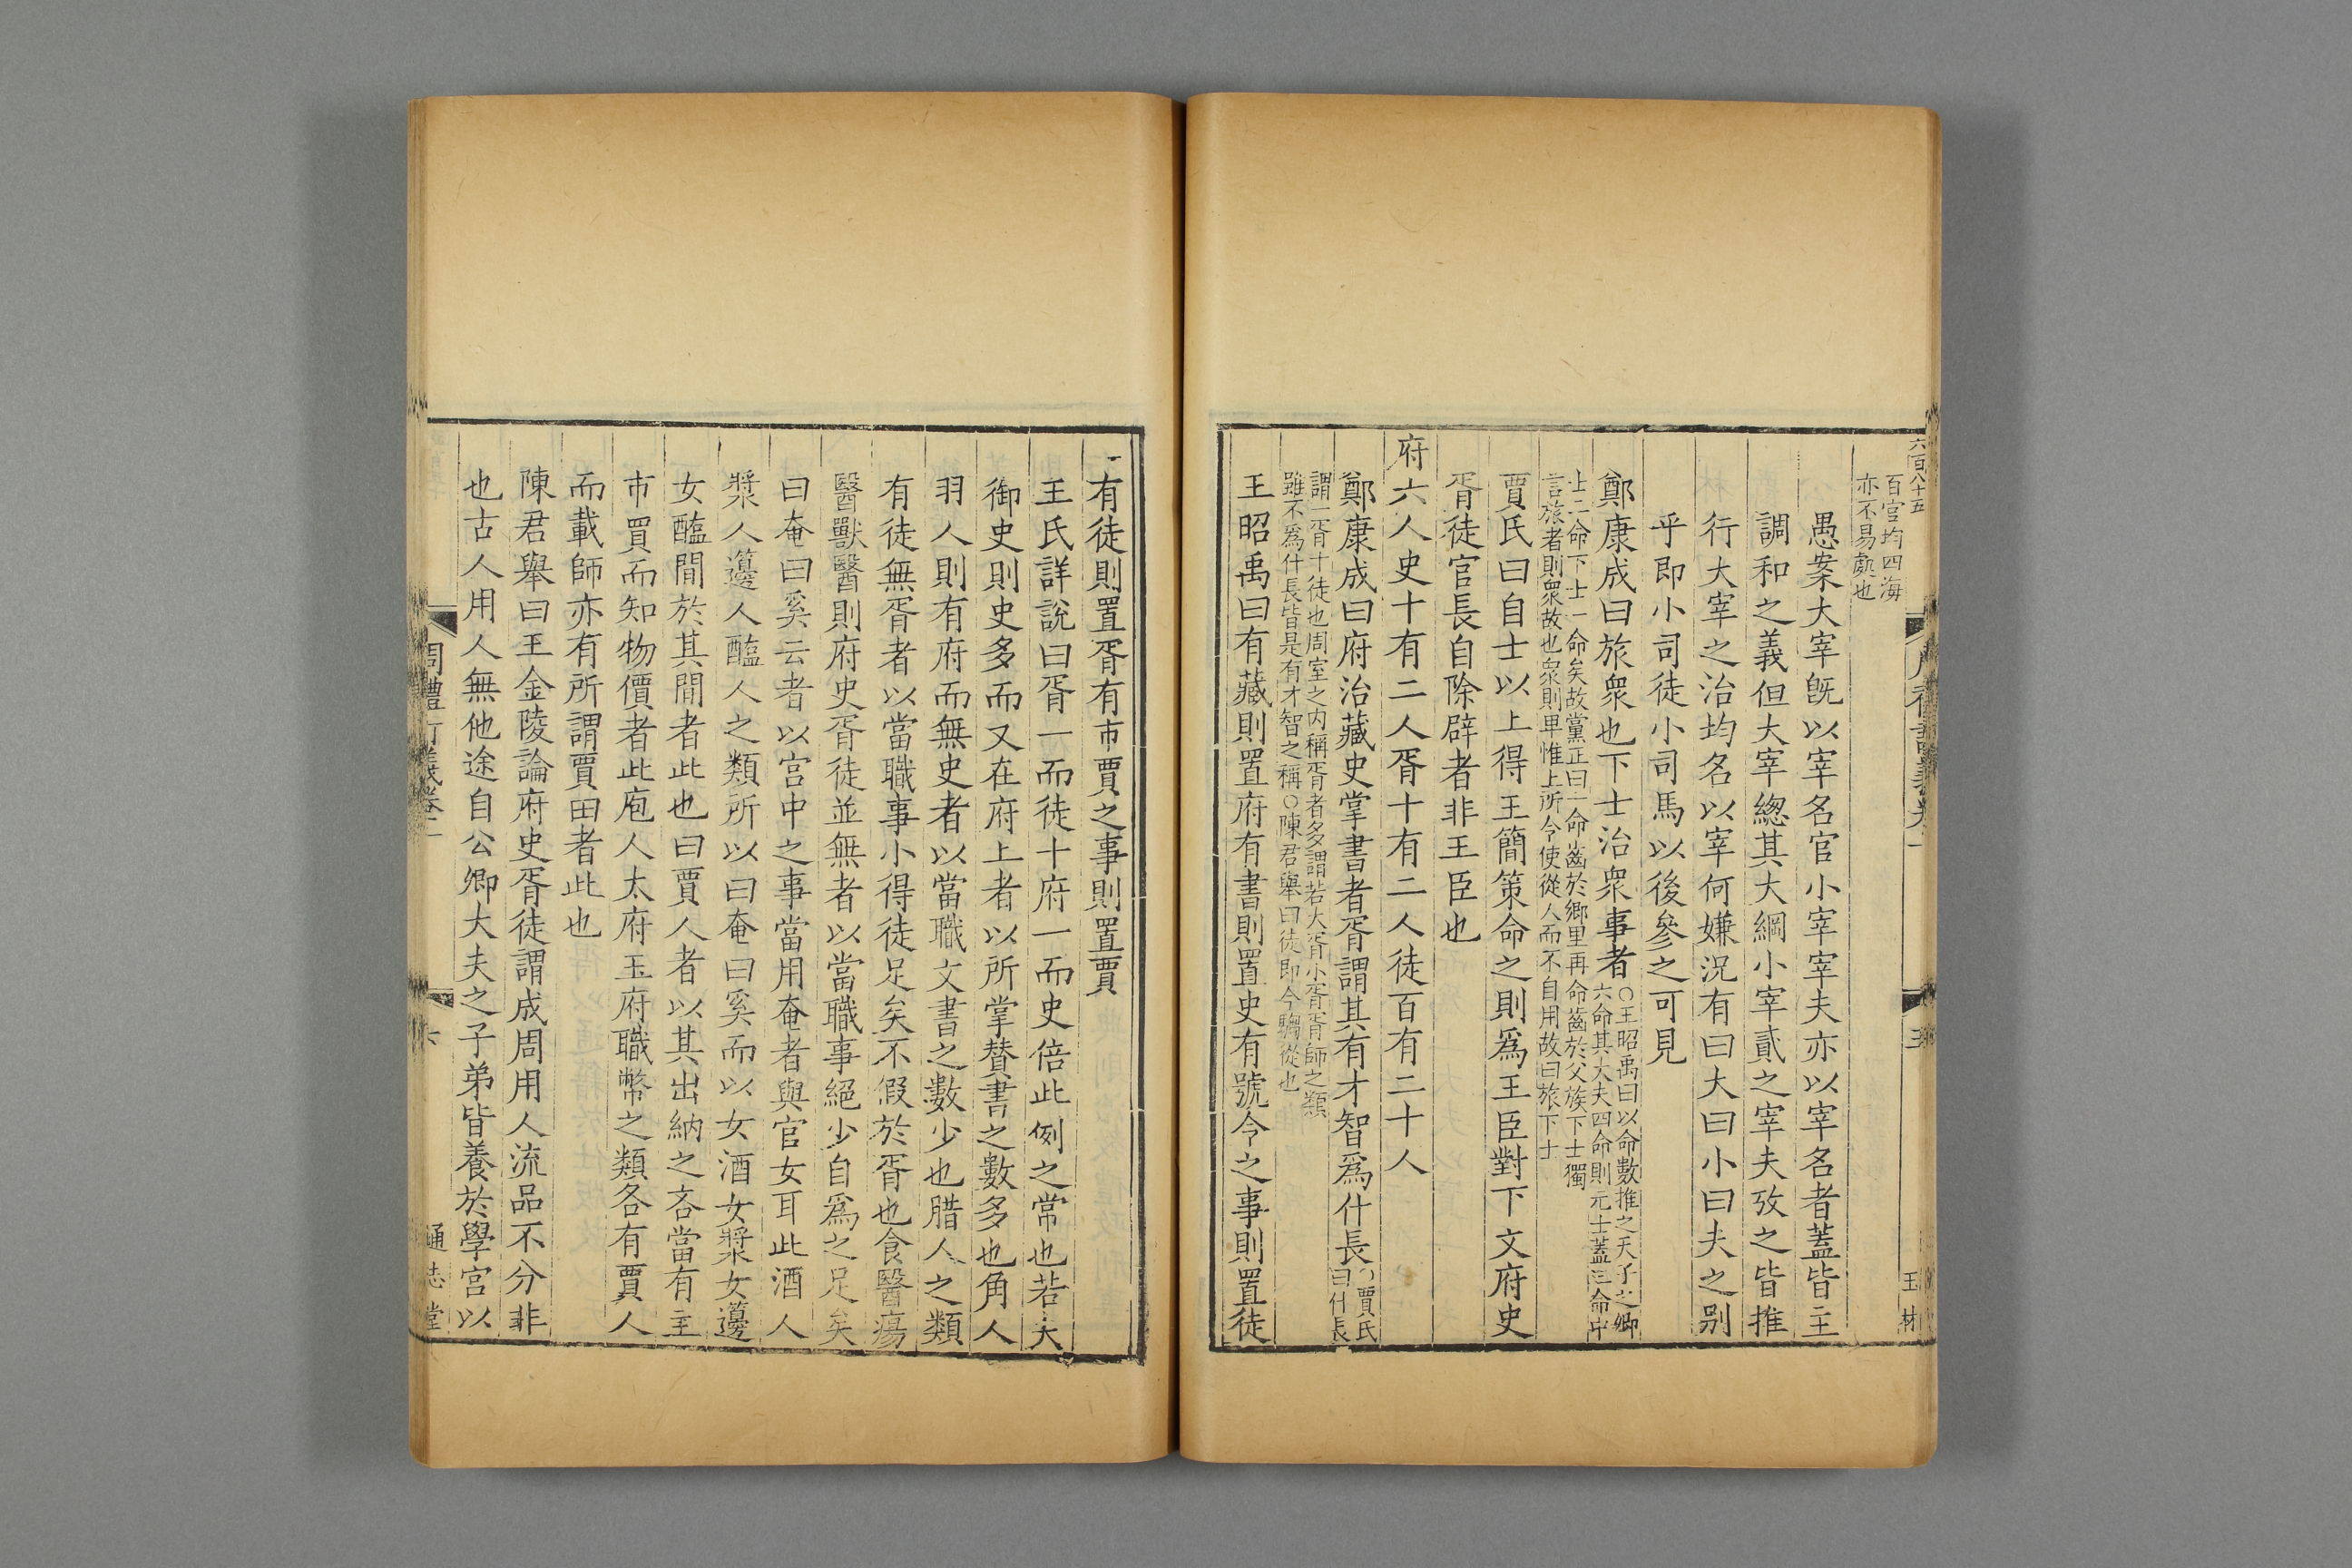 六百八十五
百官均四海
亦不易處也
愚案大宰旣以宰名官小宰宰夫亦以宰名者蓋皆主
調和之義但大宰緫其大綱小宰貳之宰夫攷之皆推
行大宰之治均名以宰何嫌況有曰大曰小曰夫之别
乎即小司徒小司馬以後參之可見
鄭康成曰旅衆也下士治衆事者○王昭禹曰以命數推之天子之卿
六命其大夫四命則元士蓋三命中
士二命下士一命矣故黨正曰一命齒於鄉里再命齒於父族下士獨
言旅者則衆故也衆則卑惟上所令使從人而不自用故曰旅下士
賈氏曰自士以上得王簡策命之則爲王臣對下文府史
胥徒官長自除辟者非王臣也
府六人史十有二人胥十有二人徒百有二十人
鄭康成曰府治藏史掌書者胥謂其有才智爲什長○賈氏
曰什長
謂一胥十徒也周室之内稱胥者多謂若大胥小胥胥師之類
雖不爲什長皆是有才智之稱○陳君舉曰徒即今騶從也
王昭禹曰有藏則置府有書則置史有號令之事則置徒
玉林
有徒則置胥有市賈之事則置賈
王氏詳說曰胥一而徒十府一而史倍此例之常也若大
御史則史多而又在府上者以所掌賛書之數多也角人
羽人則有府而無史者以當職文書之數少也腊人之類
有徒無胥者以當職事小得徒足矣不假於胥也食醫瘍
醫獸醫則府史胥徒並無者以當職事絕少自爲之足矣
曰奄曰奚云者以宫中之事當用奄者與官女耳此酒人
漿人籩人醢人之類所以曰奄曰奚而以女酒女漿女籩
女醢間於其間者此也曰賈人者以其出納之吝當有主
市買而知物價者此庖人太府玉府職幣之類各有賈人
而載師亦有所謂賈田者此也
陳君舉曰王金陵論府史胥徒謂成周用人流品不分非
也古人用人無他途自公卿大夫之子弟皆養於學宫以
周禮訂義卷二
六
通志堂